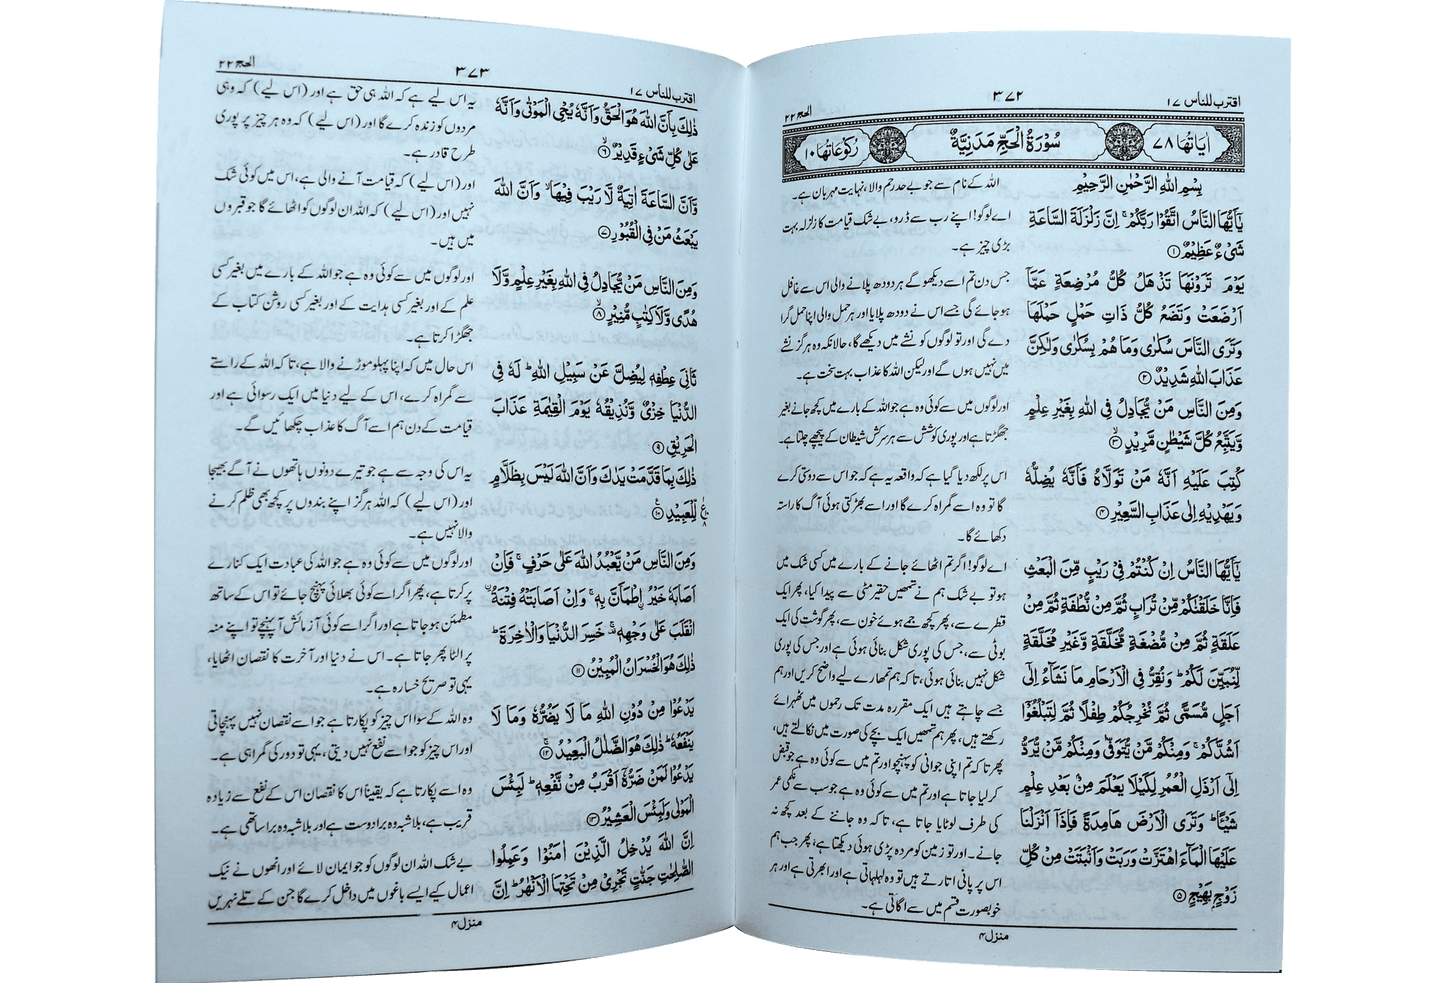 اقترب للناس ۱۷
۳۷۲
الحج ۲۲
اٰیَاتُهَا ۷۸
سُوْرَةُ الْحَجِّ مَدَنِیَّةٌ
رُکُوْعَاتُهَا ۱۰
بِسْمِ اللّٰهِ الرَّحْمٰنِ الرَّحِیْمِ
یٰۤاَیُّهَا النَّاسُ اتَّقُوْا رَبَّكُمْ ۚ اِنَّ زَلْزَلَةَ السَّاعَةِ
شَیْءٌ عَظِیْمٌ ۱
یَوْمَ تَرَوْنَهَا تَذْهَلُ كُلُّ مُرْضِعَةٍ عَمَّاۤ
اَرْضَعَتْ وَتَضَعُ كُلُّ ذَاتِ حَمْلٍ حَمْلَهَا
وَتَرَی النَّاسَ سُكٰرٰی وَمَا هُمْ بِسُكٰرٰی وَلٰكِنَّ
عَذَابَ اللّٰهِ شَدِیْدٌ ۲
وَمِنَ النَّاسِ مَنْ یُّجَادِلُ فِی اللّٰهِ بِغَیْرِ عِلْمٍ
وَّیَتَّبِعُ كُلَّ شَیْطٰنٍ مَّرِیْدٍ ۳
كُتِبَ عَلَیْهِ اَنَّهٗ مَنْ تَوَلَّاهُ فَاَنَّهٗ یُضِلُّهٗ
وَیَهْدِیْهِ اِلٰی عَذَابِ السَّعِیْرِ ۴
یٰۤاَیُّهَا النَّاسُ اِنْ كُنْتُمْ فِیْ رَیْبٍ مِّنَ الْبَعْثِ
فَاِنَّا خَلَقْنٰكُمْ مِّنْ تُرَابٍ ثُمَّ مِنْ نُّطْفَةٍ ثُمَّ مِنْ
عَلَقَةٍ ثُمَّ مِنْ مُّضْغَةٍ مُّخَلَّقَةٍ وَّغَیْرِ مُخَلَّقَةٍ
لِّنُبَیِّنَ لَكُمْ ؕ وَنُقِرُّ فِی الْاَرْحَامِ مَا نَشَآءُ اِلٰۤی
اَجَلٍ مُّسَمًّی ثُمَّ نُخْرِجُكُمْ طِفْلًا ثُمَّ لِتَبْلُغُوْۤا
اَشُدَّكُمْ ۚ وَمِنْكُمْ مَّنْ یُّتَوَفّٰی وَمِنْكُمْ مَّنْ یُّرَدُّ
اِلٰۤی اَرْذَلِ الْعُمُرِ لِكَیْلَا یَعْلَمَ مِنْۢ بَعْدِ عِلْمٍ
شَیْـًٔا ؕ وَتَرَی الْاَرْضَ هَامِدَةً فَاِذَاۤ اَنْزَلْنَا
عَلَیْهَا الْمَآءَ اهْتَزَّتْ وَرَبَتْ وَاَنْۢبَتَتْ مِنْ كُلِّ
زَوْجٍۭ بَهِیْجٍ ۵
اللہ کے نام سے جو بے حد رحم والا، نہایت مہربان ہے۔
اے لوگو! اپنے رب سے ڈرو، بے شک قیامت کا زلزلہ بہت
بڑی چیز ہے۔
جس دن تم اسے دیکھو گے ہر دودھ پلانے والی اس سے غافل
ہو جائے گی جسے اس نے دودھ پلایا اور ہر حمل والی اپنا حمل گرا
دے گی اور تو لوگوں کو نشے میں دیکھے گا، حالانکہ وہ ہرگز نشے
میں نہیں ہوں گے اور لیکن اللہ کا عذاب بہت سخت ہے۔
اور لوگوں میں سے کوئی وہ ہے جو اللہ کے بارے میں کچھ جانے بغیر
جھگڑتا ہے اور پوری کوشش سے ہر سرکش شیطان کے پیچھے چلتا ہے۔
اس پر لکھ دیا گیا ہے کہ واقعہ یہ ہے کہ جو اس سے دوستی کرے
گا تو وہ اسے گمراہ کرے گا اور اسے بھڑکتی ہوئی آگ کا راستہ
دکھائے گا۔
اے لوگو! اگر تم اٹھائے جانے کے بارے میں کسی شک میں
ہو تو بے شک ہم نے تمھیں حقیر مٹی سے پیدا کیا، پھر ایک
قطرے سے، پھر کچھ جمے ہوئے خون سے، پھر گوشت کی ایک
بوٹی سے، جس کی پوری شکل بنائی ہوئی ہے اور جس کی پوری
شکل نہیں بنائی ہوئی، تاکہ ہم تمھارے لیے واضح کریں اور ہم
جسے چاہتے ہیں ایک مقررہ مدت تک رحموں میں ٹھہرائے
رکھتے ہیں، پھر ہم تمھیں ایک بچے کی صورت میں نکالتے ہیں،
پھر تاکہ تم اپنی جوانی کو پہنچو اور تم میں سے کوئی وہ ہے جو قبض
کر لیا جاتا ہے اور تم میں سے کوئی وہ ہے جو سب سے نکمی عمر
کی طرف لوٹایا جاتا ہے، تاکہ وہ جاننے کے بعد کچھ نہ
جانے۔ اور تو زمین کو مردہ پڑی ہوئی دیکھتا ہے، پھر جب ہم
اس پر پانی اتارتے ہیں تو وہ لہلہاتی ہے اور ابھرتی ہے اور ہر
خوبصورت قسم میں سے اگاتی ہے۔
منزل ۴
اقترب للناس ۱۷
۳۷۳
الحج ۲۲
ذٰلِكَ بِاَنَّ اللّٰهَ هُوَ الْحَقُّ وَاَنَّهٗ یُحْیِ الْمَوْتٰی وَاَنَّهٗ
عَلٰی كُلِّ شَیْءٍ قَدِیْرٌ ۶
وَّاَنَّ السَّاعَةَ اٰتِیَةٌ لَّا رَیْبَ فِیْهَا ۙ وَاَنَّ اللّٰهَ
یَبْعَثُ مَنْ فِی الْقُبُوْرِ ۷
وَمِنَ النَّاسِ مَنْ یُّجَادِلُ فِی اللّٰهِ بِغَیْرِ عِلْمٍ وَّلَا
هُدًی وَّلَا كِتٰبٍ مُّنِیْرٍ ۸
ثَانِیَ عِطْفِهٖ لِیُضِلَّ عَنْ سَبِیْلِ اللّٰهِ ؕ لَهٗ فِی
الدُّنْیَا خِزْیٌ وَّنُذِیْقُهٗ یَوْمَ الْقِیٰمَةِ عَذَابَ
الْحَرِیْقِ ۹
ذٰلِكَ بِمَا قَدَّمَتْ یَدٰكَ وَاَنَّ اللّٰهَ لَیْسَ بِظَلَّامٍ
لِّلْعَبِیْدِ ۱۰
وَمِنَ النَّاسِ مَنْ یَّعْبُدُ اللّٰهَ عَلٰی حَرْفٍ ۚ فَاِنْ
اَصَابَهٗ خَیْرُ ۨاطْمَاَنَّ بِهٖ ۚ وَاِنْ اَصَابَتْهُ فِتْنَةُ ۨ
انْقَلَبَ عَلٰی وَجْهِهٖ ۚ خَسِرَ الدُّنْیَا وَالْاٰخِرَةَ ؕ
ذٰلِكَ هُوَ الْخُسْرَانُ الْمُبِیْنُ ۱۱
یَدْعُوْا مِنْ دُوْنِ اللّٰهِ مَا لَا یَضُرُّهٗ وَمَا لَا
یَنْفَعُهٗ ؕ ذٰلِكَ هُوَ الضَّلٰلُ الْبَعِیْدُ ۱۲
یَدْعُوْا لَمَنْ ضَرُّهٗۤ اَقْرَبُ مِنْ نَّفْعِهٖ ؕ لَبِئْسَ
الْمَوْلٰی وَلَبِئْسَ الْعَشِیْرُ ۱۳
اِنَّ اللّٰهَ یُدْخِلُ الَّذِیْنَ اٰمَنُوْا وَعَمِلُوا
الصّٰلِحٰتِ جَنّٰتٍ تَجْرِیْ مِنْ تَحْتِهَا الْاَنْهٰرُ ؕ اِنَّ
یہ اس لیے ہے کہ اللہ ہی حق ہے اور (اس لیے) کہ وہی
مردوں کو زندہ کرے گا اور (اس لیے) کہ وہ ہر چیز پر پوری
طرح قادر ہے۔
اور (اس لیے) کہ قیامت آنے والی ہے، اس میں کوئی شک
نہیں اور (اس لیے) کہ اللہ ان لوگوں کو اٹھائے گا جو قبروں
میں ہیں۔
اور لوگوں میں سے کوئی وہ ہے جو اللہ کے بارے میں بغیر کسی
علم کے اور بغیر کسی ہدایت کے اور بغیر کسی روشن کتاب کے
جھگڑا کرتا ہے۔
اس حال میں کہ اپنا پہلو موڑنے والا ہے، تاکہ اللہ کے راستے
سے گمراہ کرے، اس کے لیے دنیا میں ایک رسوائی ہے اور
قیامت کے دن ہم اسے آگ کا عذاب چکھائیں گے۔
یہ اس کی وجہ سے ہے جو تیرے دونوں ہاتھوں نے آگے بھیجا
اور (اس لیے) کہ اللہ ہرگز اپنے بندوں پر کچھ بھی ظلم کرنے
والا نہیں ہے۔
اور لوگوں میں سے کوئی وہ ہے جو اللہ کی عبادت ایک کنارے
پر کرتا ہے، پھر اگر اسے کوئی بھلائی پہنچ جائے تو اس کے ساتھ
مطمئن ہو جاتا ہے اور اگر اسے کوئی آزمائش آ پہنچے تو اپنے منہ
پر الٹا پھر جاتا ہے۔ اس نے دنیا اور آخرت کا نقصان اٹھایا،
یہی تو صریح خسارہ ہے۔
وہ اللہ کے سوا اس چیز کو پکارتا ہے جو اسے نقصان نہیں پہنچاتی
اور اس چیز کو جو اسے نفع نہیں دیتی، یہی تو دور کی گمراہی ہے۔
وہ اسے پکارتا ہے کہ یقیناً اس کا نقصان اس کے نفع سے زیادہ
قریب ہے، بلاشبہ وہ برا دوست ہے اور بلاشبہ وہ برا ساتھی ہے۔
بے شک اللہ ان لوگوں کو جو ایمان لائے اور انھوں نے نیک
اعمال کیے ایسے باغوں میں داخل کرے گا جن کے تلے نہریں
منزل ۴